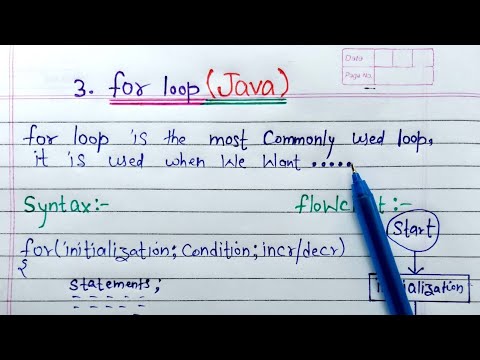 Date
Page No.
3. for loop (Java)
for loop is the most Commonly used loop,
it is used when We Want .....
Syntax:- flowchart :-
Start
for(initialization; Condition; incr/decr)
{
initialization
statements;